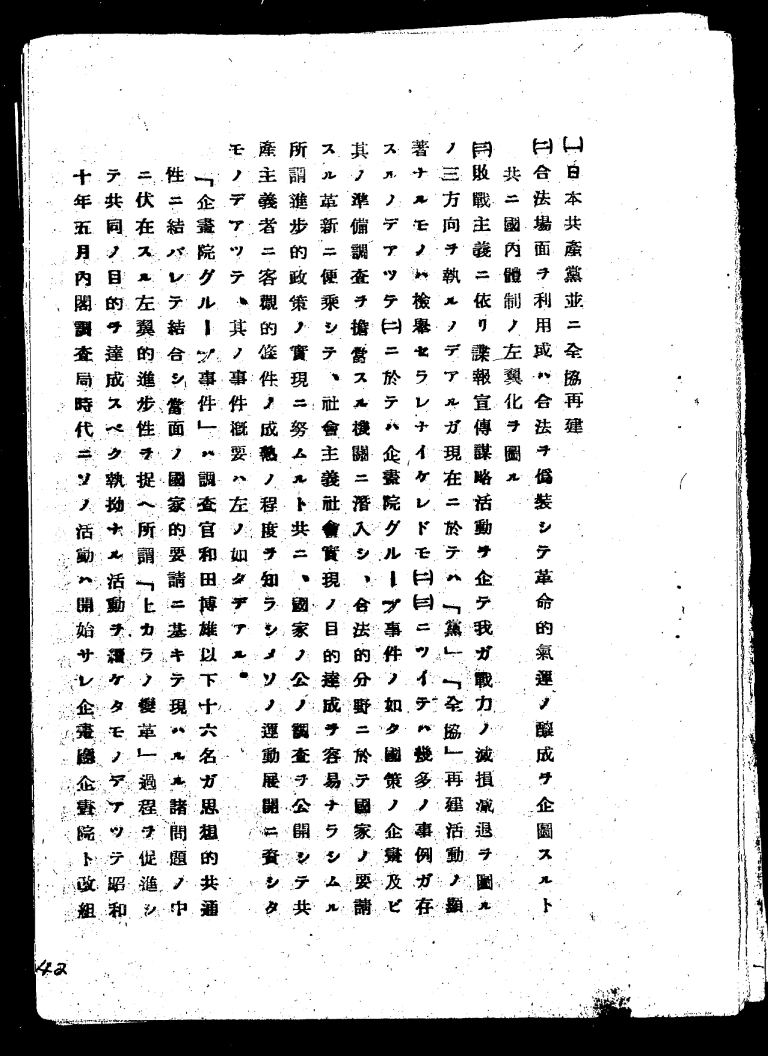 ㈠日本共產黨並ニ全協再建
㈡合法場面ヲ利用或ハ合法ヲ僞裝シテ革命的氣運ノ釀成ヲ企圖スルト
共ニ國內體制ノ左翼化ヲ圖ル
㈢敗戰主義ニ依リ諜報宣傳謀略活動ヲ企テ我ガ戰力ノ滅損減退ヲ圖ル
ノ三方向ヲ執ルノデアルガ現在ニ於テハ「黨」「全協」再建活動ノ顯
著ナルモノハ檢擧セラレナイケレドモ㈡㈢ニツイテハ幾多ノ事例ガ存
スルノデアツテ㈡ニ於テハ企畫院グループ事件ノ如ク國策ノ企畫及ビ
其ノ準備調査ヲ擔當スル機關ニ潛入シ、合法的分野ニ於テ國家ノ要請
スル革新ニ便乘シテ、社會主義社會實現ノ目的達成ヲ容易ナラシムル
所謂進步的政策ノ實現ニ努ムルト共ニ、國家ノ公ノ調査ヲ公開シテ共
產主義者ニ客觀的條件ノ成熟ノ程度ヲ知ラシメソノ運動展開ニ資シタ
モノデアツテ、其ノ事件槪要ハ左ノ如クデアル。
「企畫院グループ事件」ハ調査官和田博雄以下十六名ガ思想的共通
性ニ結バレテ結合シ當面ノ國家的要請ニ基キテ現ハルル諸問題ノ中
ニ伏在スル左翼的進步性ヲ捉ヘ所謂「上カラノ變革」過程ヲ促進シ
テ共同ノ目的ヲ達成スベク執拗ナル活動ヲ續ケタモノデアツテ昭和
十年五月內閣調査局時代ニソノ活動ハ開始サレ企畫廳企畫院ト改組
42